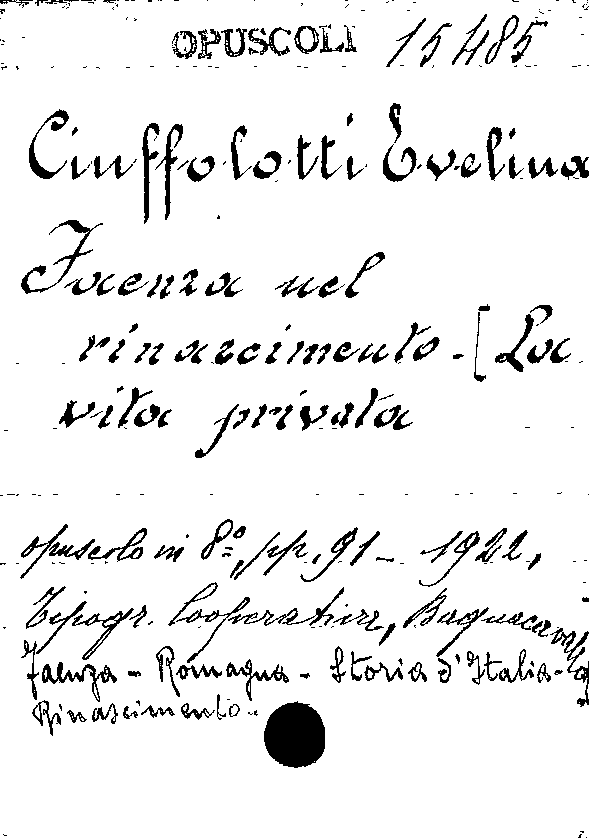 OPUSCOLI 15485
Ciuffolotti Evelina
Faenza nel
rinascimento. [La
vita privata
opuscolo in 8º, pp. 91 - 1922,
Tipogr. Cooperative, Bagnacavallo
Faenza - Romagna - Storia d'Italia -
Rinascimento.